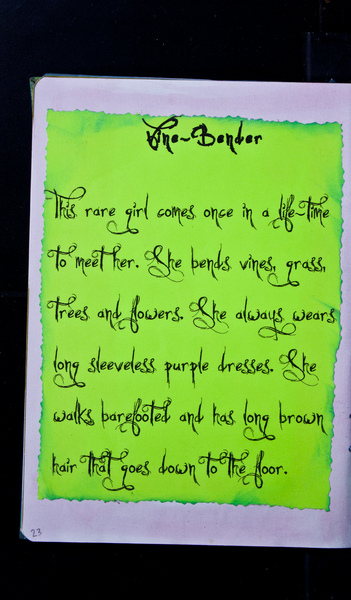 Vine~Bender
This rare girl comes once in a life~time
to meet her. She bends vines, grass,
trees and flowers. She always wears
long sleeveless purple dresses. She
walks barefooted and has long brown
hair that goes down to the floor.
23